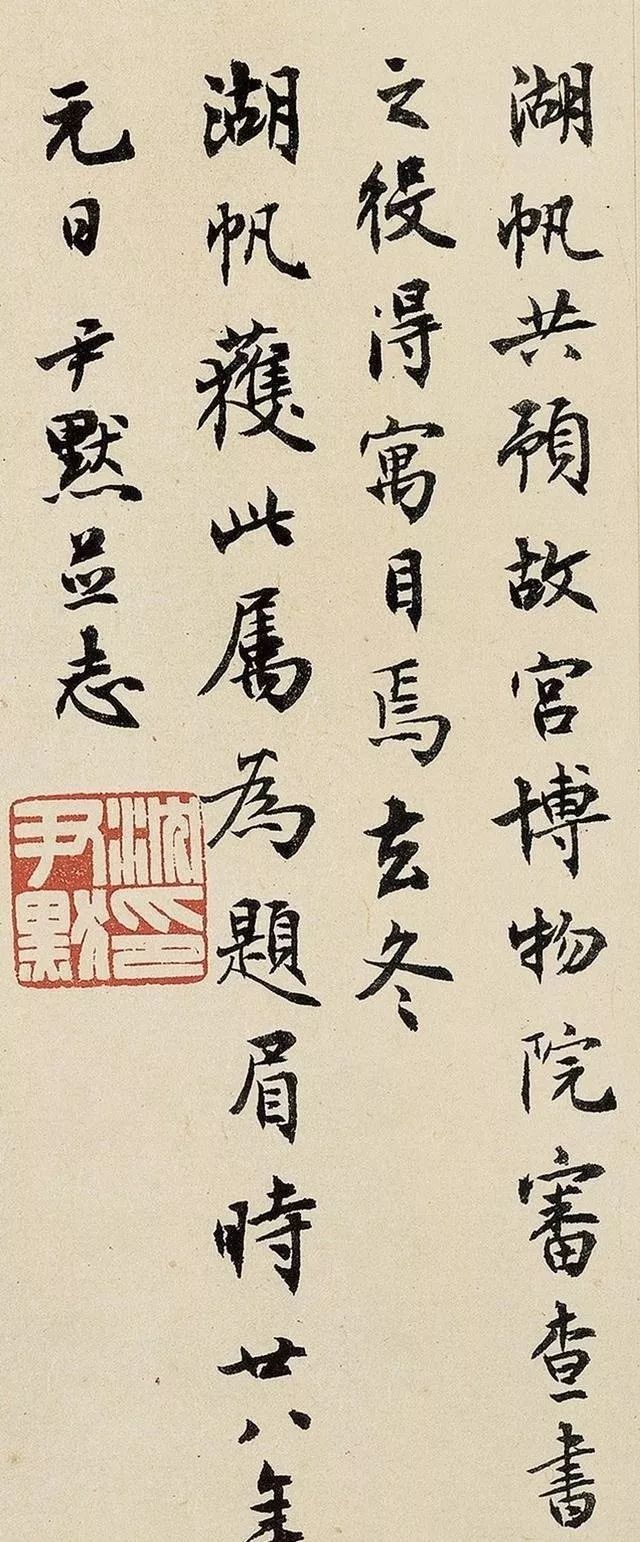 湖帆共預故宫博物院審查書
之役得寓目焉去冬
湖帆獲此属為題眉時廿八年
元日尹默並志
沈尹默印